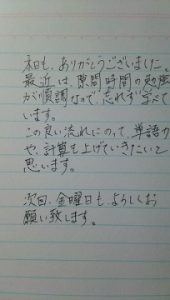 本日も、ありがとうございました。
最近は、隙間時間の勉強
が順調なので、忘れず学べて
います。
この良い流れにのって、単語力
や、計算も上げていきたいと
思います。
次回、金曜日も、よろしくお
願い致します。